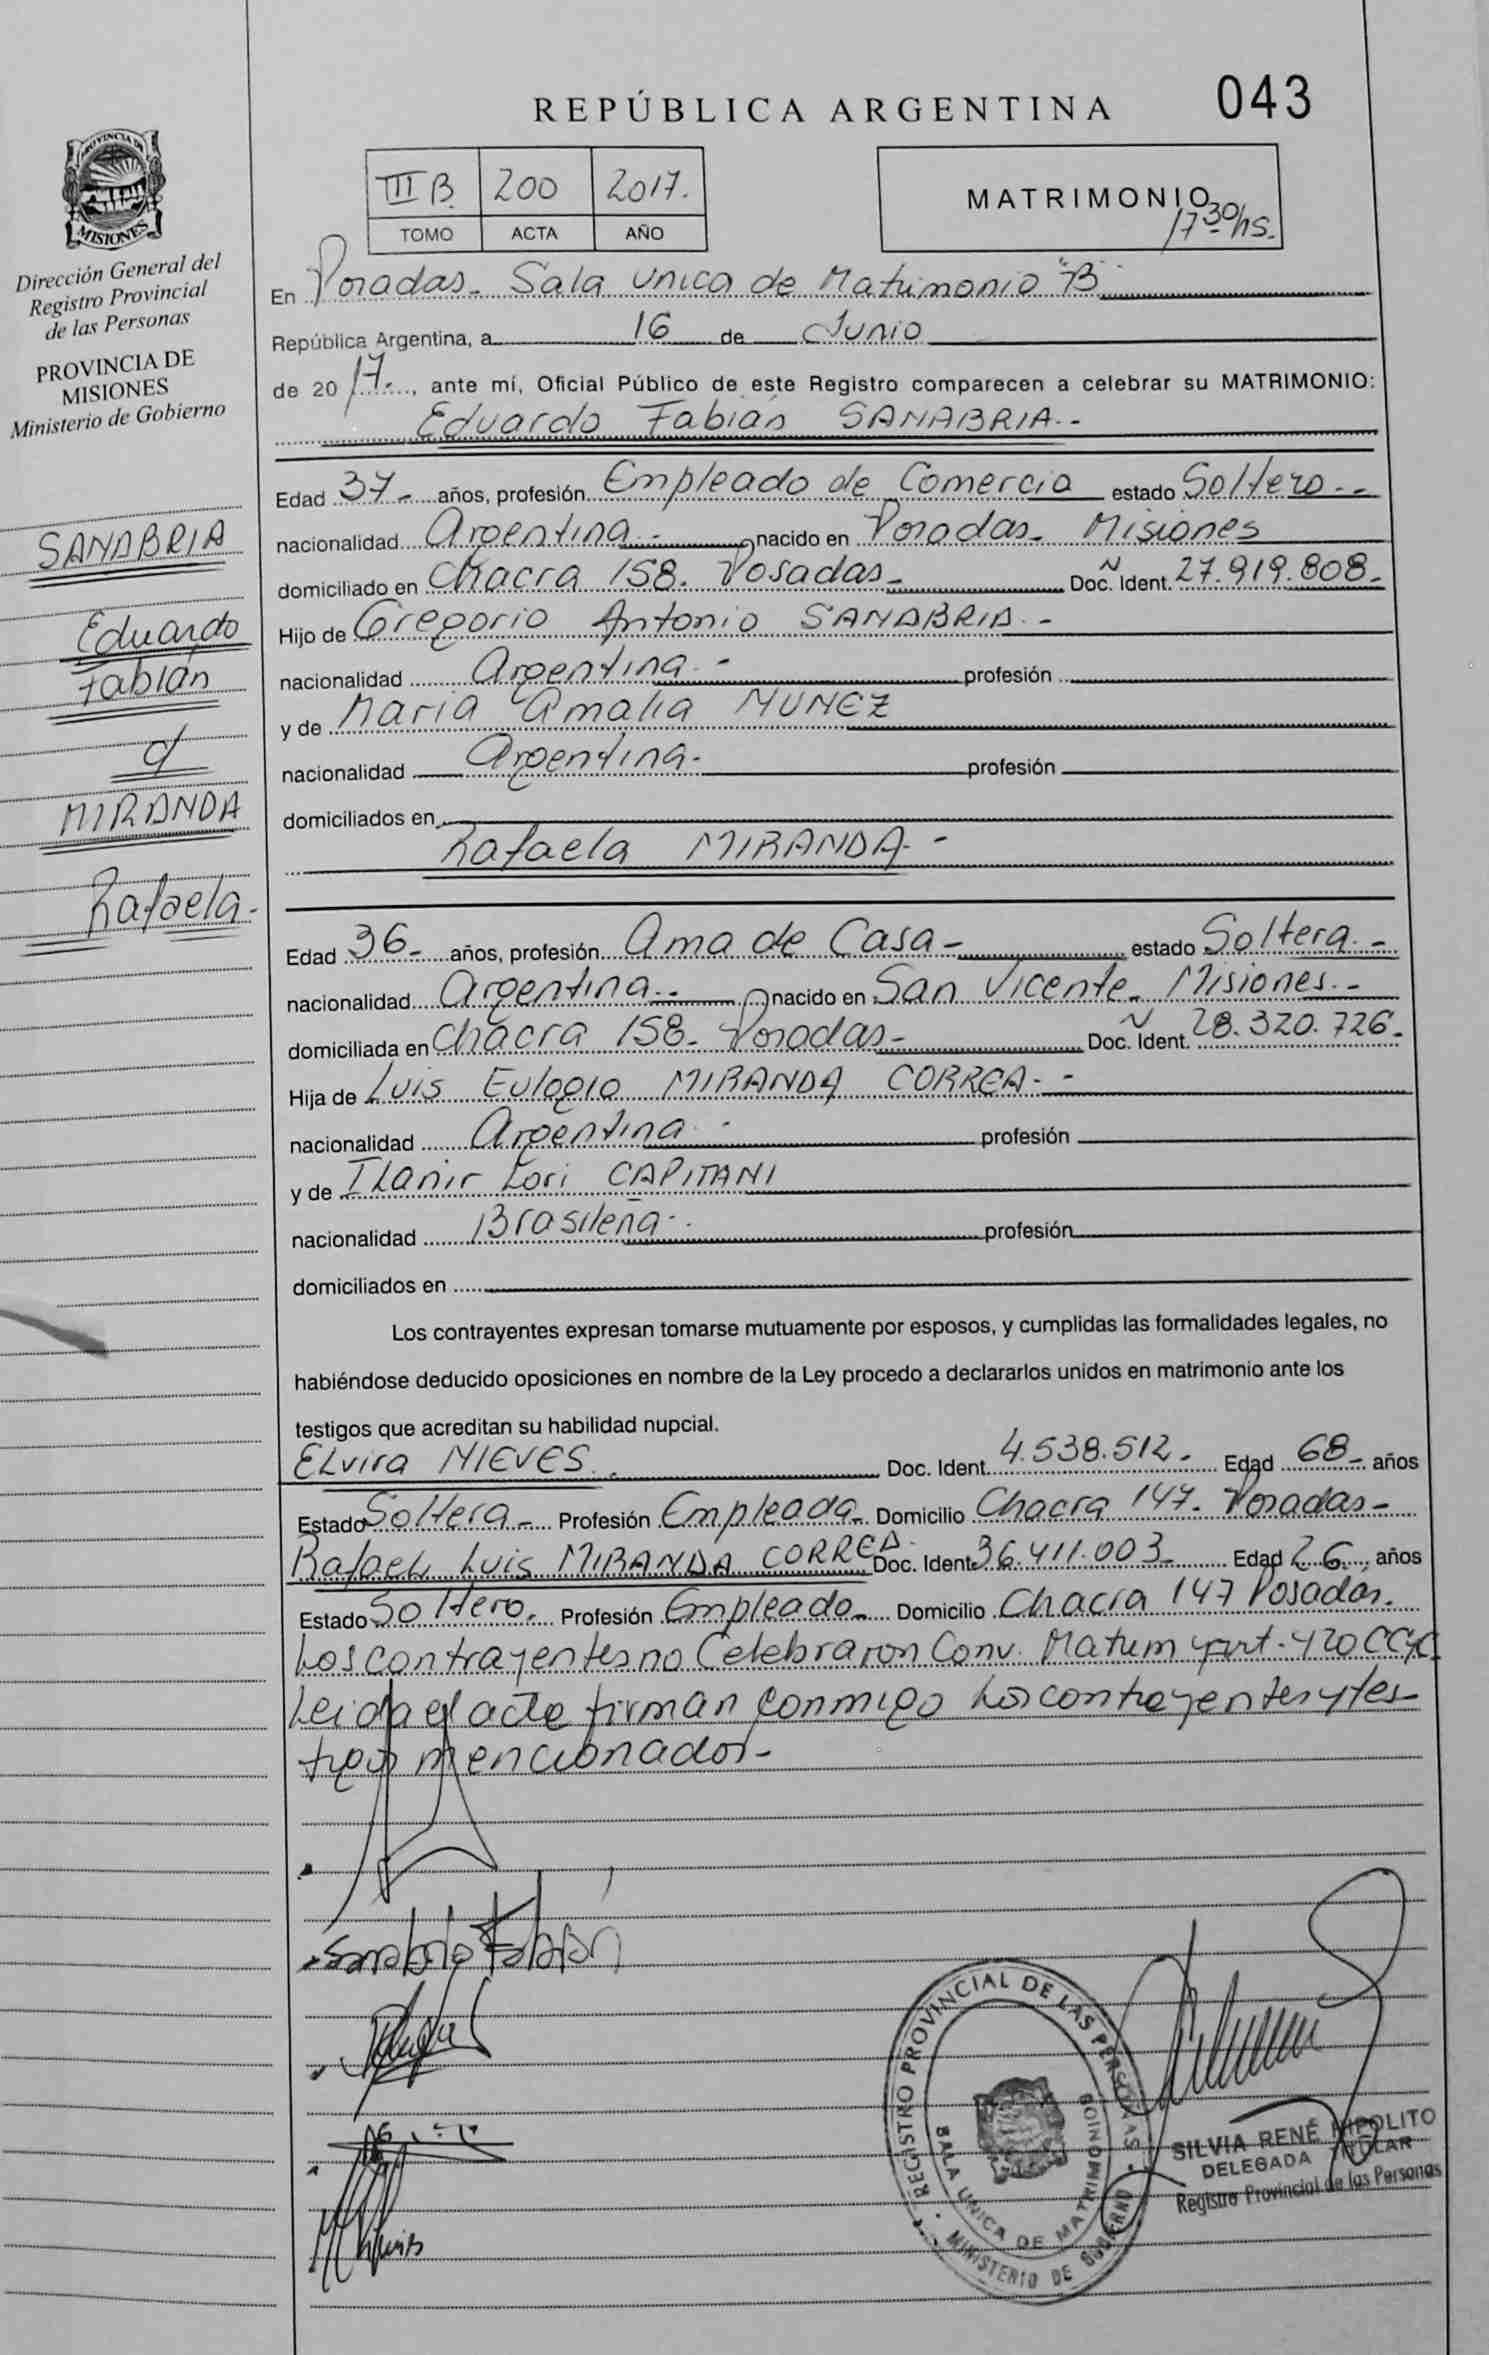 REPÚBLICA ARGENTINA 043
PROVINCIA DE
MISIONES
Dirección General del
Registro Provincial
de las Personas
PROVINCIA DE
MISIONES
Ministerio de Gobierno
SANABRIA
Eduardo
Fabián
c/
MIRANDA
Rafaela.-
III B. 200 2017.
TOMO ACTA AÑO
MATRIMONIO
17 30 hs.
En Posadas. Sala Unica de Matrimonio "B"
República Argentina, a 16 de Junio
de 20 17.-, ante mí, Oficial Público de este Registro comparecen a celebrar su MATRIMONIO:
Eduardo Fabián SANABRIA.-
Edad 37.- años, profesión Empleado de Comercio estado Soltero.-
nacionalidad Argentina.- nacido en Posadas. Misiones
domiciliado en Chacra 158. Posadas.- Doc. Ident. 27.919.808.-
Hijo de Gregorio Antonio SANABRIA.-
nacionalidad Argentina.- profesión
y de Maria Amalia NUÑEZ
nacionalidad Argentina.- profesión
domiciliados en
Rafaela MIRANDA.-
Edad 36.- años, profesión Ama de Casa.- estado Soltera.-
nacionalidad Argentina.- nacido en San Vicente. Misiones.-
domiciliada en Chacra 158. Posadas.- Doc. Ident. 28.320.726.-
Hija de Luis Eulogio MIRANDA CORREA.-
nacionalidad Argentina.- profesión
y de Ilanir Lori CAPITANI
nacionalidad Brasileña.- profesión
domiciliados en
Los contrayentes expresan tomarse mutuamente por esposos, y cumplidas las formalidades legales, no
habiéndose deducido oposiciones en nombre de la Ley procedo a declararlos unidos en matrimonio ante los
testigos que acreditan su habilidad nupcial.
Elvira NIEVES. Doc. Ident. 4.538.512.- Edad 68.- años
Estado Soltera.- Profesión Empleada.- Domicilio Chacra 147. Posadas.-
Rafael Luis MIRANDA CORREA. Doc. Ident. 36.411.003. Edad 26. años
Estado Soltero. Profesión Empleado.- Domicilio Chacra 147 Posadas.
Los contrayentes no Celebraron Conv. Matrim y Art. 420 CCyC.
Leida el acta firman conmigo los contrayentes y tes-
tigos mencionados.-
Sanabria Fabián
REGISTRO PROVINCIAL DE LAS PERSONAS
SALA UNICA DE MATRIMONIOS
MINISTERIO DE GOBIERNO
SILVIA RENÉ HIPOLITO
DELEGADA TITULAR
Registro Provincial de las Personas